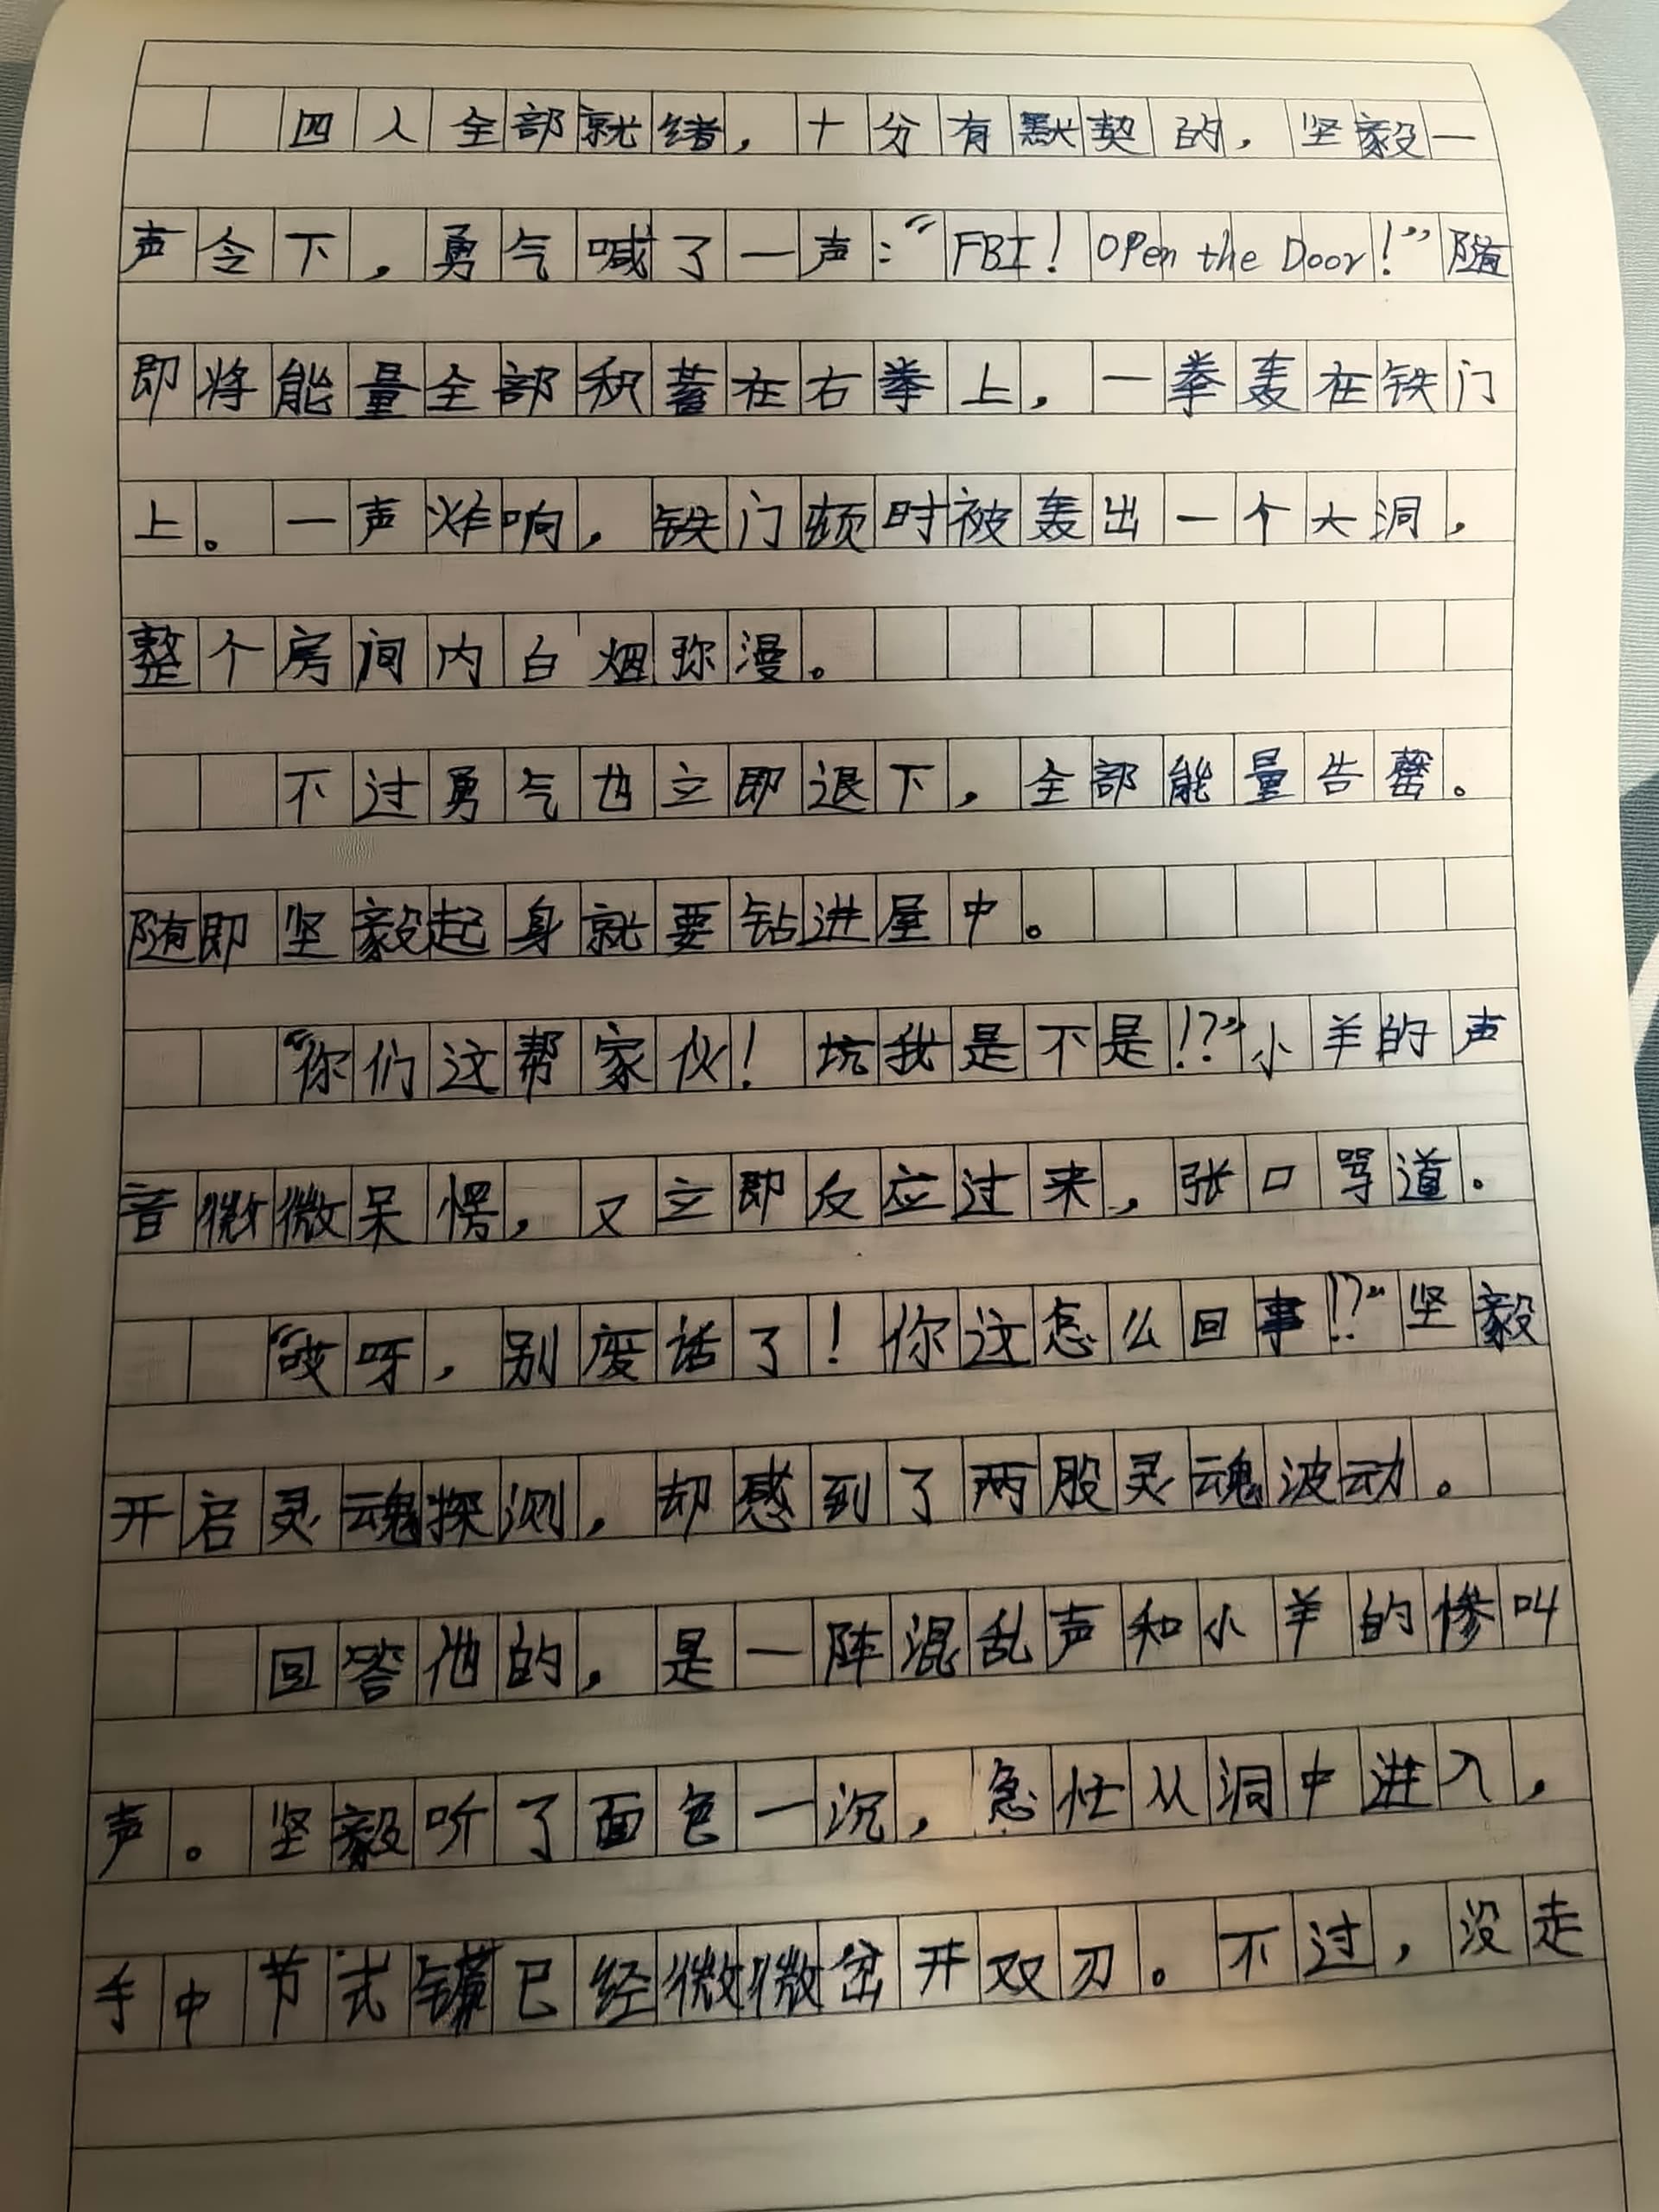 四人全部就绪，十分有默契的，坚毅一
声令下，勇气喊了一声：“FBI！Open the Door！”随
即将能量全部积蓄在右拳上，一拳轰在铁门
上。一声炸响，铁门顿时被轰出一个大洞，
整个房间内白烟弥漫。
不过勇气也立即退下，全部能量告罄。
随即坚毅起身就要钻进屋中。
“你们这帮家伙！坑我是不是！？”小羊的声
音微微呆愣，又立即反应过来，张口骂道。
“哎呀，别废话了！你这怎么回事！？”坚毅
开启灵魂探测，却感到了两股灵魂波动。
回答他的，是一阵混乱声和小羊的惨叫
声。坚毅听了面色一沉，急忙从洞中进入，
手中节式镰已经微微岔开双刃。不过，没走